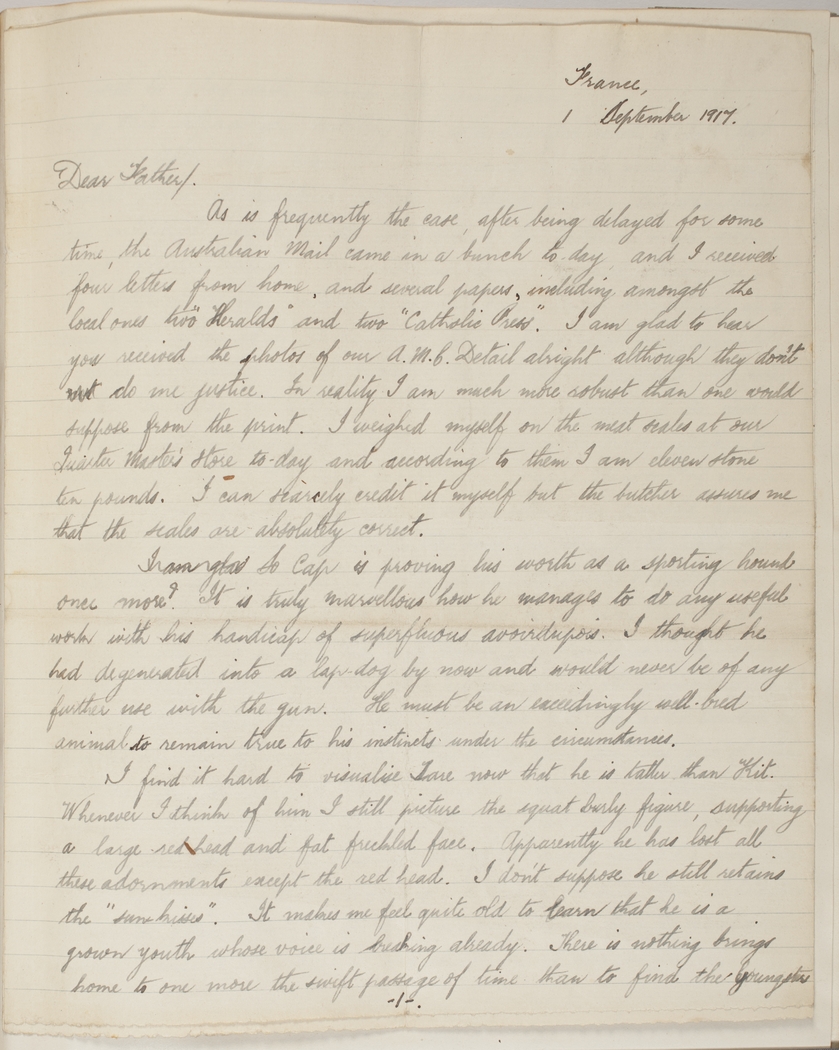 France,
1 September 1917.
Dear Father/.
As is frequently the case, after being delayed for some
time, the Australian Mail came in a bunch to-day and I received
four letters from home, and several papers, including amongst the
local ones two "Heralds" and two "Catholic Press". I am glad to hear
you received the photos of our A.M.C. Detail alright although they don't
do me justice. In reality I am much more robust than one would
suppose from the print. I weighed myself on the meat scales at our
Quarter Master's store to-day and according to them I am eleven stone
ten pounds. I can scarcely credit it myself but the butcher assures me
that the scales are absolutely correct.
So Cap is proving his worth as a sporting hound
once more? It is truly marvellous how he manages to do any useful
work with his handicap of superfluous avoirdupois. I thought he
had degenerated into a lap-dog by now and would never be of any
further use with the gun. He must be an exceedingly well-bred
animal to remain true to his instincts under the circumstances.
I find it hard to visualise now that he is taller than Kit.
Whenever I think of him I still picture the squat burly figure, supporting
a large red head and fat freckled face. Apparently he has lost all
these adornments except the red head. I don't suppose he still retains
the "sun kisses". It makes me feel quite old to learn that he is a
grown youth whose voice is breaking already. There is nothing brings
home to one more the swift passage of time than to find the youngsters
-1-.